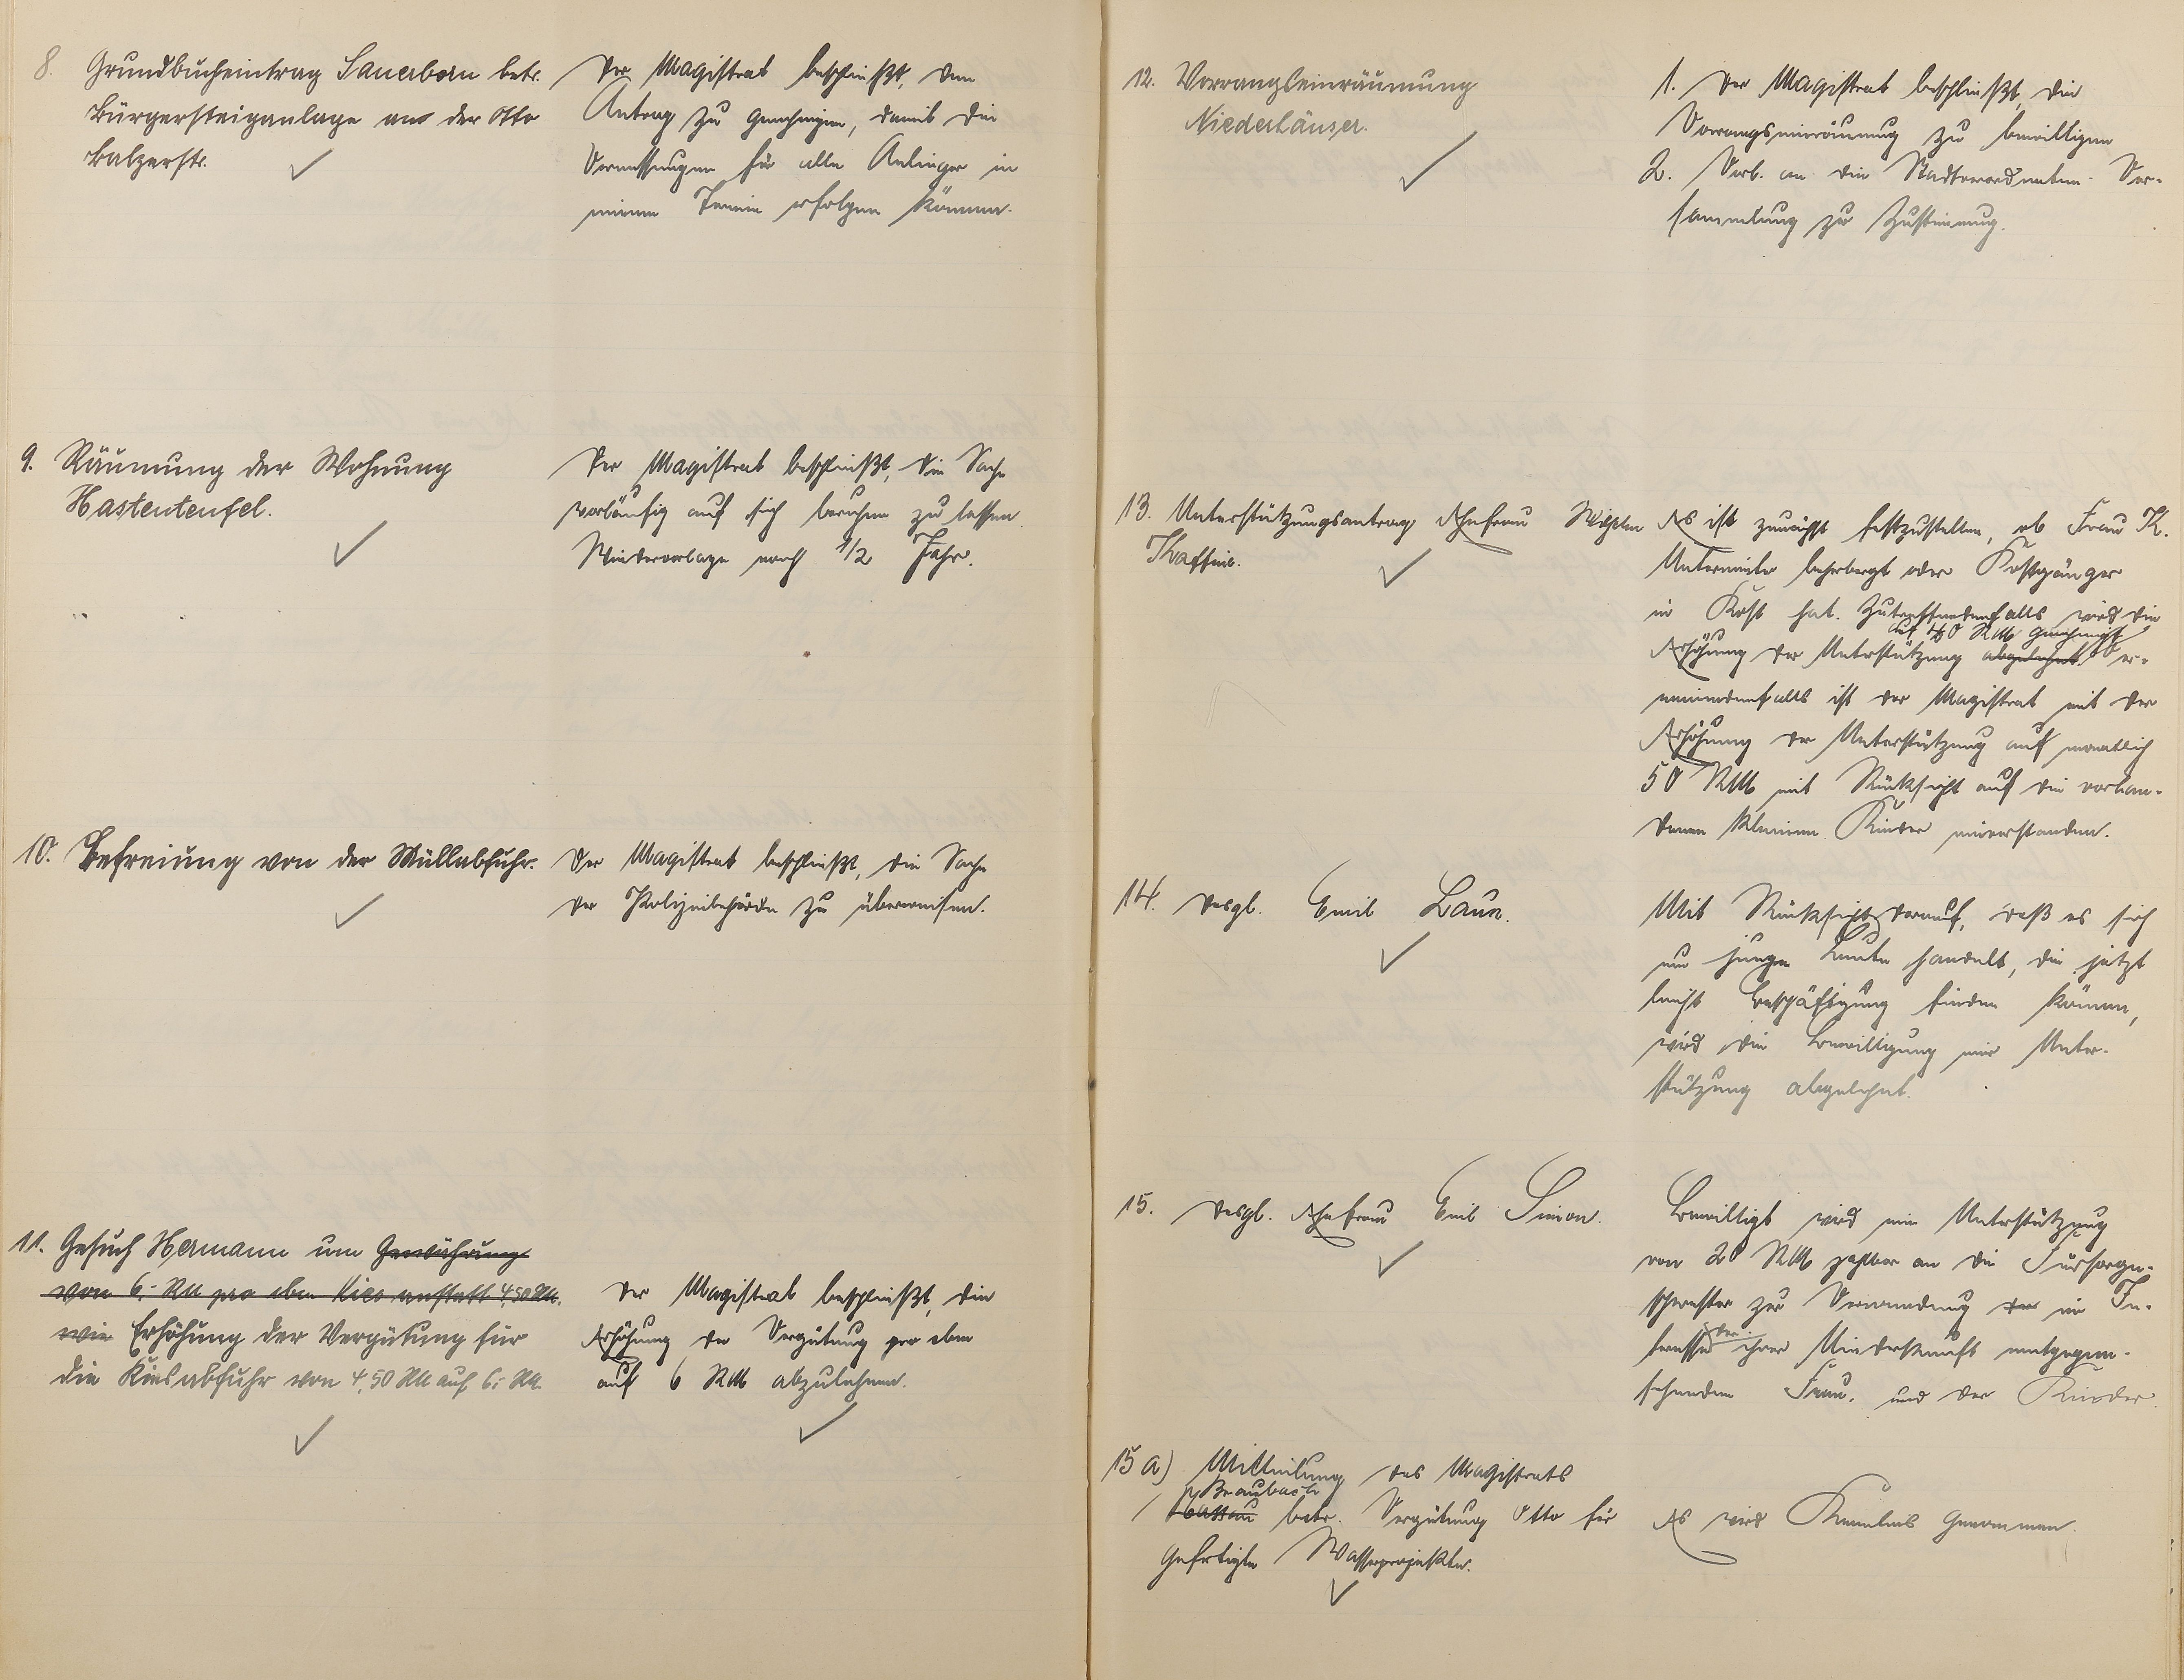 8. Grundbucheintrag Sauerborn betr.
Bürgersteiganlage an der Otto
Balzerstr.
Der Magistrat beschließt, den
Antrag zu genehmigen, damit die
Vermessungen für alle Anlieger in
einem Termin erfolgen können.
9. Räumung der Wohnung
Hastenteufel.
Der Magistrat beschließt, die Sache
vorläufig auf sich beruhen zu lassen.
Wiedervorlage nach 1/2 Jahr.
10. Befreiung von der Müllabfuhr.
Der Magistrat beschließt, die Sache
der Polizeibehörde zu überweisen.
11. Gesuch Hermann um Gewährung
von 6,- RM pro cbm Kies anstatt 4,50 RM.
wie Erhöhung der Vergütung für
die Kiesabfuhr von 4,50 RM auf 6,- RM.
Der Magistrat beschließt, die
Erhöhung der Vergütung pro cbm
auf 6 RM abzulehnen.
12. Vorrangseinräumung
Niederhäuser.
1. Der Magistrat beschließt, die
Vorrangseinräumung zu bewilligen
2. Vorl. an die Stadtverordneten-Ver-
sammlung zur Zustimmung.
13. Unterstützungsantrag Ehefrau Wilhelm
Kaffine.
Es ist zunächst festzustellen, ob Frau K.
Untermieter beherbergt oder Kostgänger
in Kost hat. Zutreffendenfalls wird die
auf 40 RM genehmigt
Erhöhung der Unterstützung abgelehnt. Ver-
neinendenfalls ist der Magistrat mit der
Erhöhung der Unterstützung auf monatlich
50 RM mit Rücksicht auf die vorhan-
denen kleinen Kinder einverstanden.
14. desgl. Emil Laux.
Mit Rücksicht darauf, daß es sich
um junge Leute handelt, die jetzt
leicht Beschäftigung finden können,
wird die Bewilligung einer Unter-
stützung abgelehnt.
15. desgl. Ehefrau Emil Simon.
Bewilligt wird eine Unterstützung
von 20 RM zahlbar an die Fürsorge-
schwester zur Verwendung der im In-
teresse der ihrer Niederkunft entgegen-
sehenden Frau. und der Kinder.
15 a) Mitteilung des Magistrats
Braubach
Nassau betr. Vergütung Otto für
gefertigte Wasserprojekte.
Es wird Kenntnis genommen.